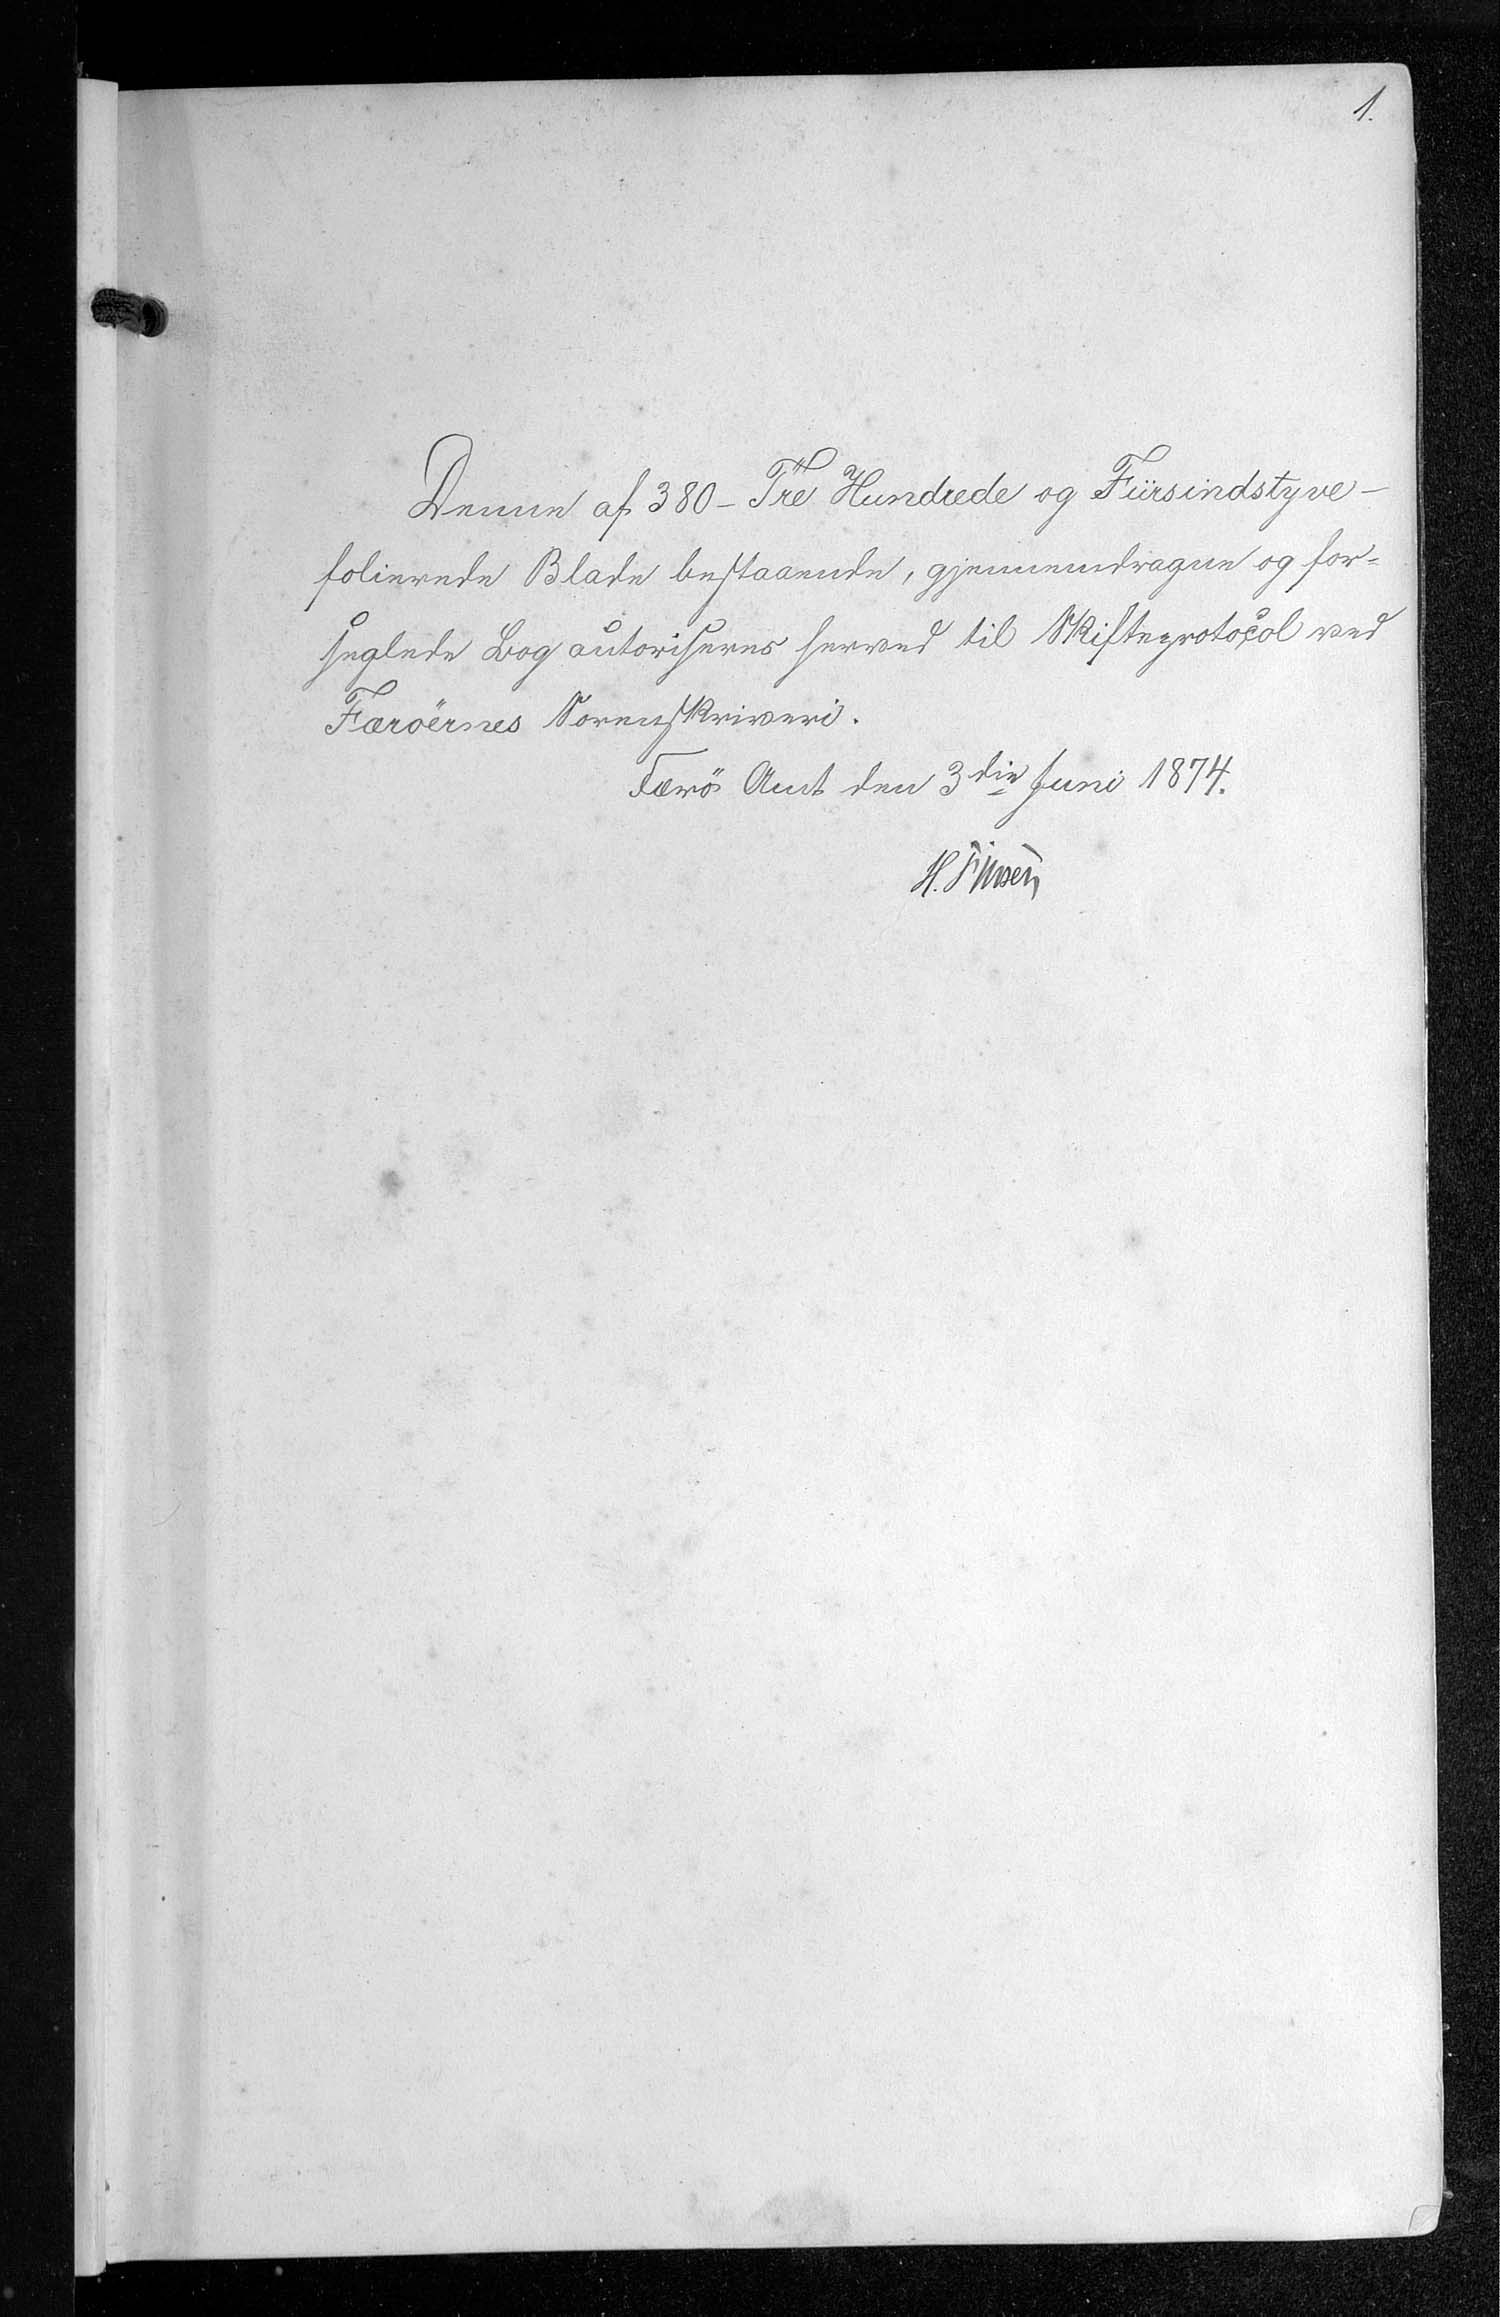 1.
Denne af 380 - Tre Hundrede og Fiirsindstyve -
folierede Blade bestaaende, gjennemdragne og for-
seglede Bog autoriseres herved til Skifteprotocol ved
Færöernes Sorenskriveri.
Færö Amt den 3die Juni 1874.
H. Finsen